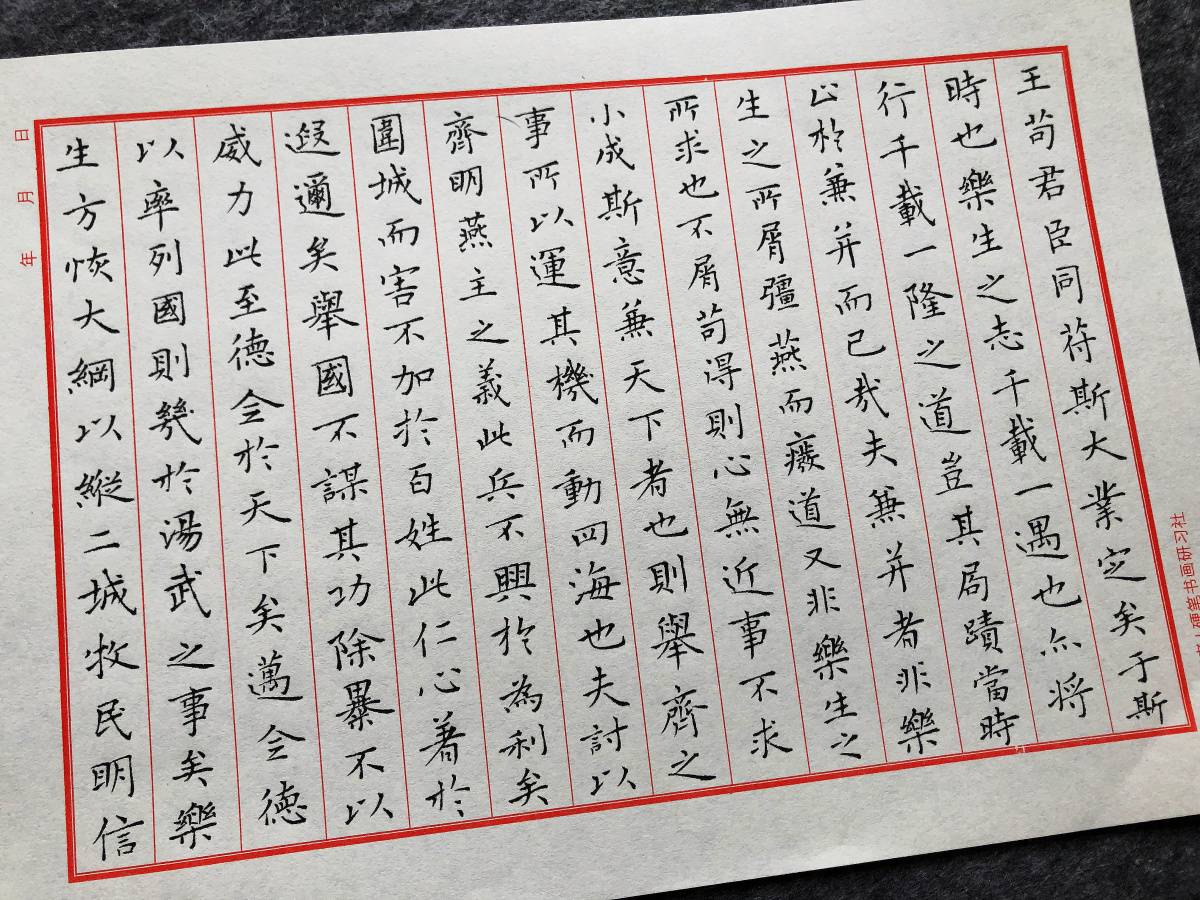 王苟君臣同苻斯大業定矣于斯
時也樂生之志千載一遇也亦將
行千載一隆之道豈其局蹟當時
止於兼并而已哉夫兼并者非樂
生之所屑彊燕而癈道又非樂生之
所求也不屑苟得則心無近事不求
小成斯意兼天下者也則舉齊之
事所以運其機而動四海也夫討以
齊明燕主之義此兵不興於為利矣
圍城而害不加於百姓此仁心著於
遐邇矣舉國不謀其功除暴不以
威力此至德令於天下矣邁全德
以率列國則幾於湯武之事矣樂
生方恢大綱以縱二城牧民明信
年 月 日
硬笔书画研习社